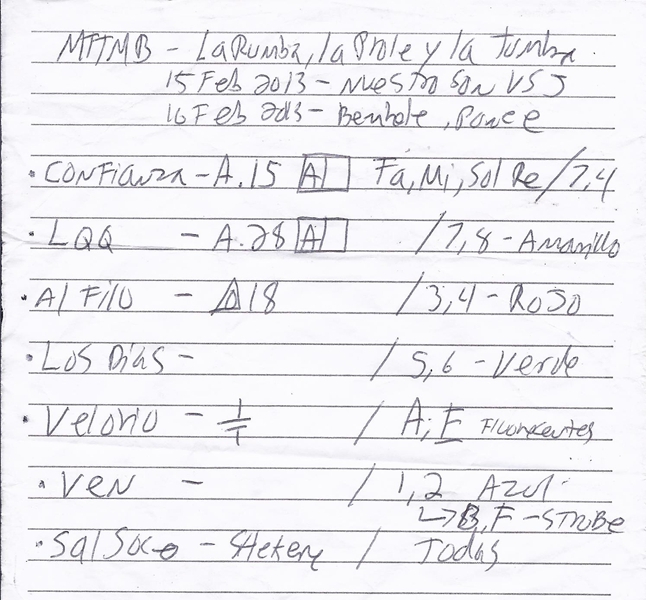 MTTMB - La Rumba, la Prole y la Tumba
15 Feb 2013 - Nuestro Son VSJ
16 Feb 2013 - , Ponce
• Confianza - A.15 A Fa, Mi, Sol Re / 7,4
• LQQ - A.28 A / 7,8 - Amarillo
• Al Filo - 18 / 3,4 - Rojo
• Los Días - / 5,6 - Verde
• Velorio - / A, E
• Ven - / 1,2 Azul
↳ B, F - Strobe
• / Todas